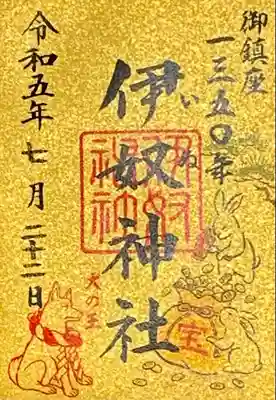 御鎮座
一三五〇年
伊奴神社
いぬ
伊奴神社
犬の王
宝
令和五年七月二十二日